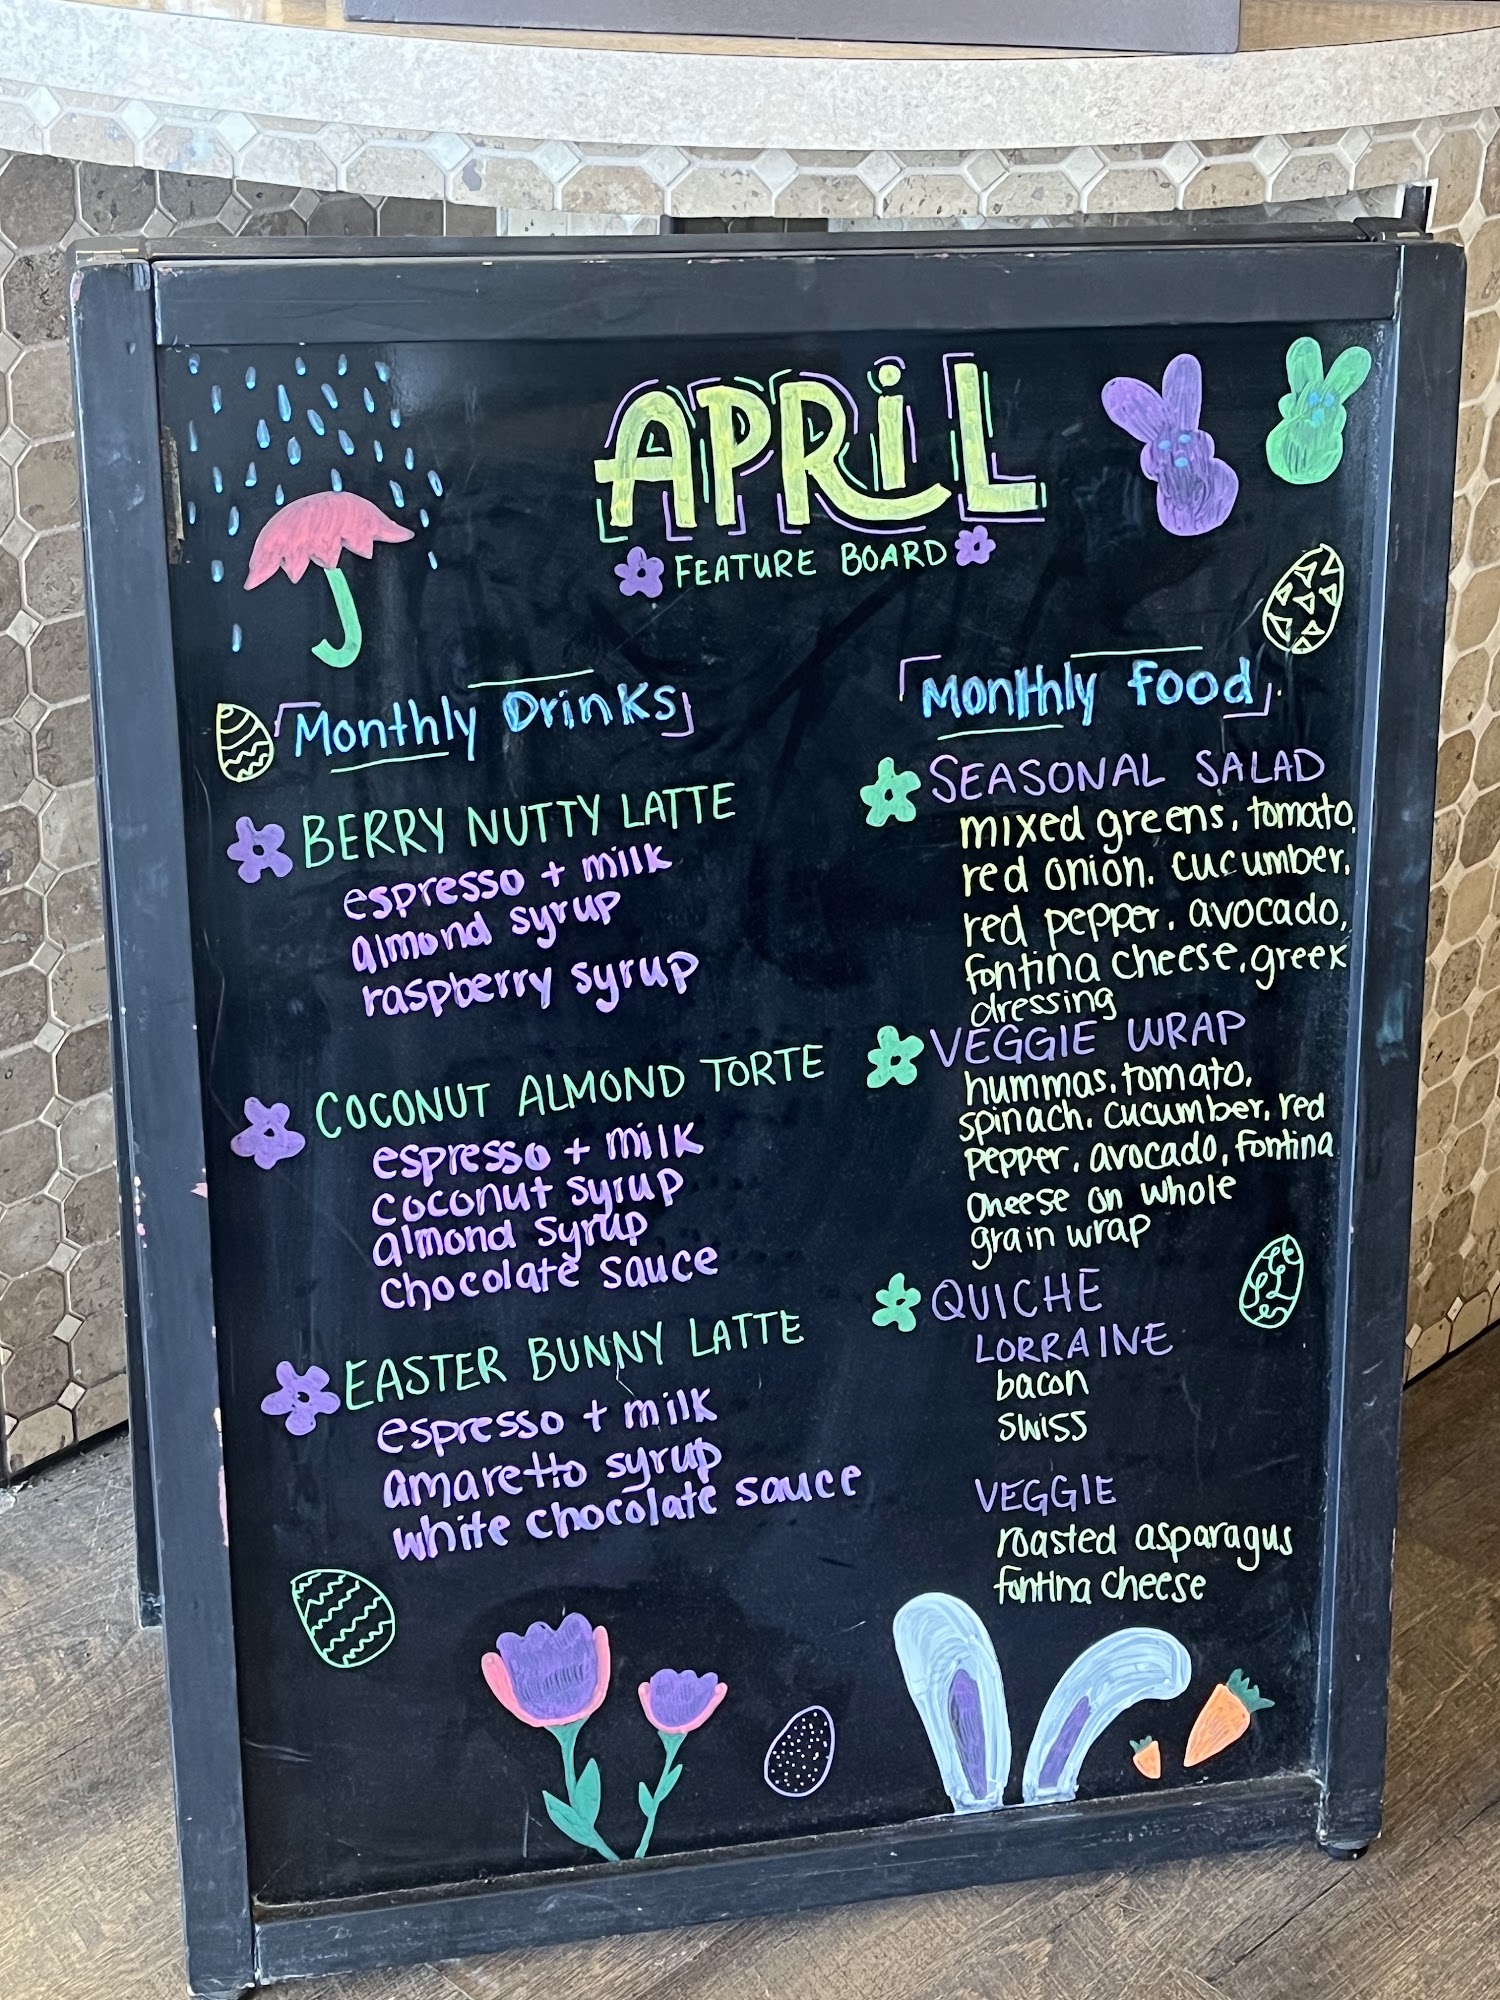 APRiL
FEATURE BOARD
Monthly Drinks
BERRY NUTTY LATTE
espresso + milk
almond syrup
raspberry syrup
COCONUT ALMOND TORTE
espresso + milk
coconut syrup
almond syrup
chocolate sauce
EASTER BUNNY LATTE
espresso + milk
amaretto syrup
white chocolate sauce
Monthly Food
SEASONAL SALAD
mixed greens, tomato,
red onion, cucumber,
red pepper, avocado,
fontina cheese, greek
dressing
VEGGIE WRAP
hummas, tomato,
spinach, cucumber, red
pepper, avocado, fontina
cheese on whole
grain wrap
QUICHE
LORRAINE
bacon
swiss
VEGGIE
roasted asparagus
fontina cheese